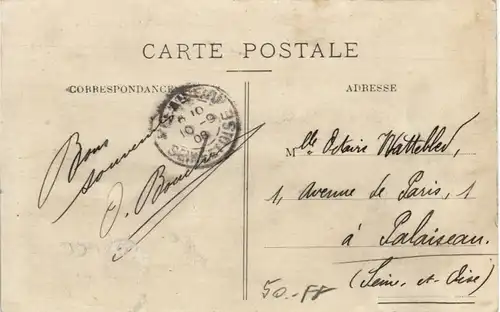 CARTE POSTALE
CORRESPONDANCE
ADRESSE
Bons
souvenirs
Mlle Octaire Wattebled,
1, Avenue de Paris, 1
à Palaiseau.
(Seine-et-Oise)
50-FF